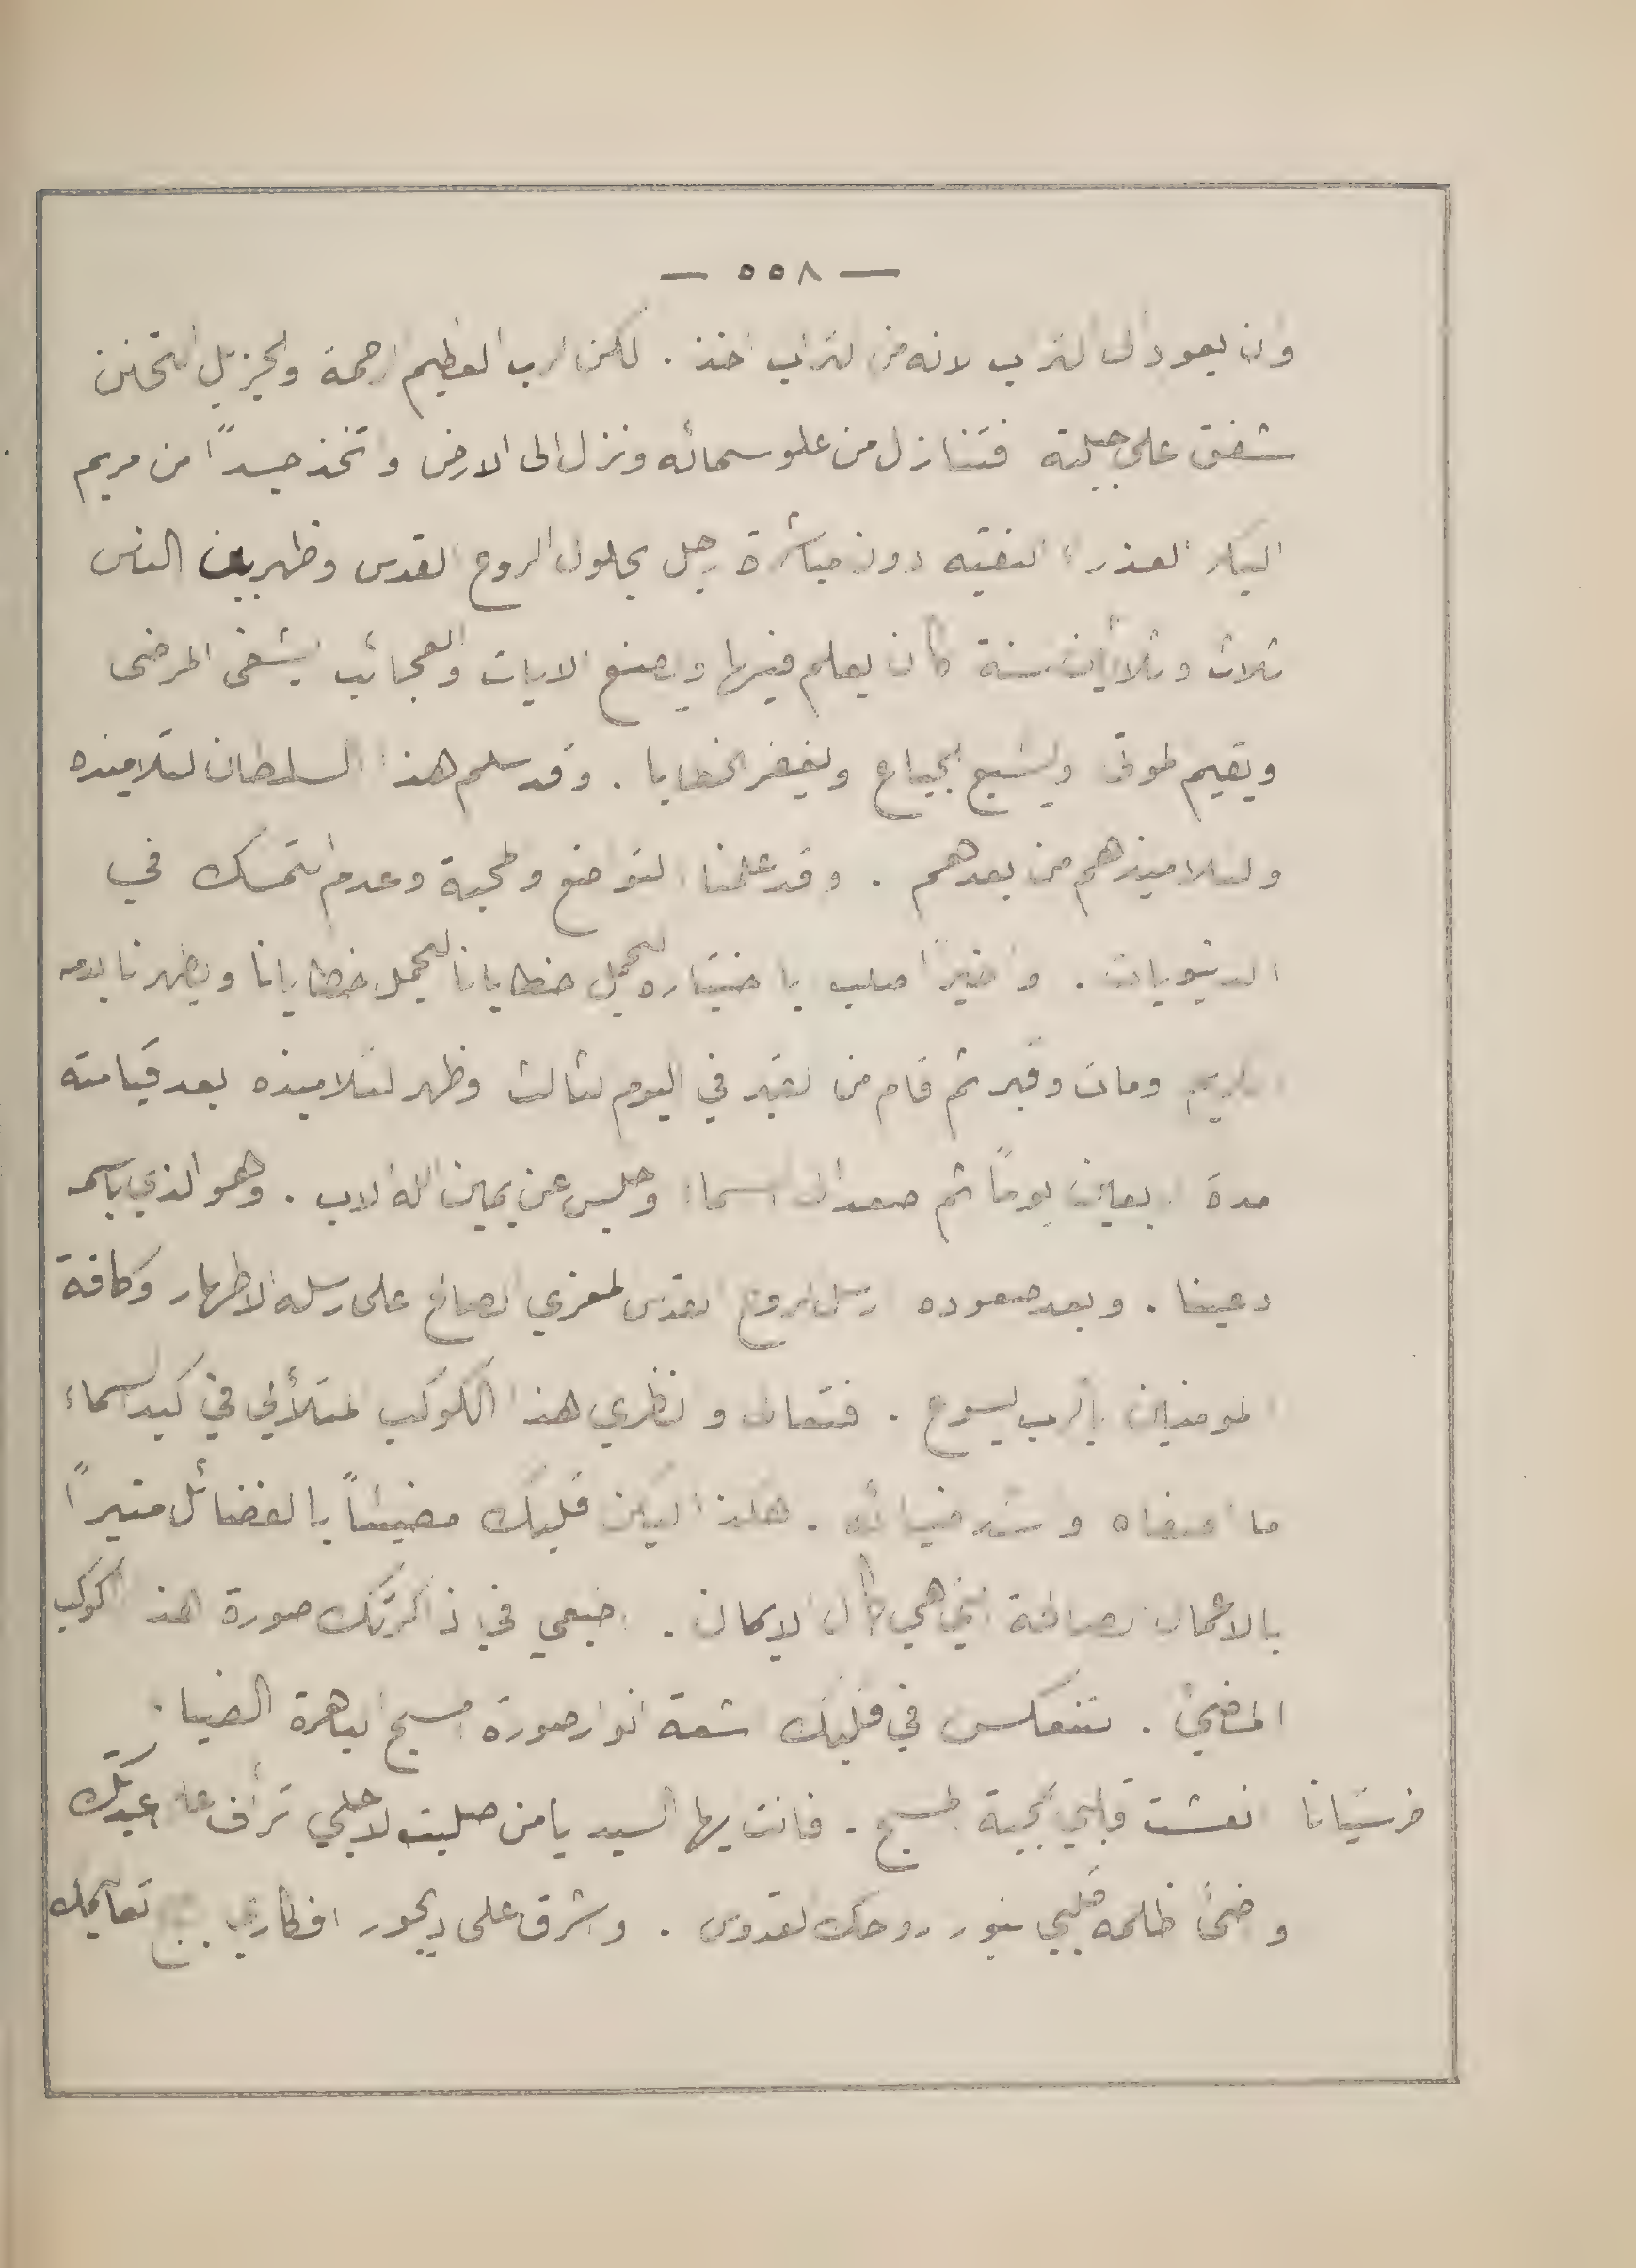 — ٥٥٨ —
وان يعود الى التراب لانه من التراب اخذ . لكن الرب العظيم الرحمة والجزيل التحنن
شفق على جبلته فتنازل من علو سمائه ونزل الى الارض واتخذ جسداً من مريم
البكر العذراء النقيه دون مباشرة رجل بحلول الروح القدس وظهر بين الناس
ثلاث وثلاثين سنة كان يعلم فيها ويصنع الايات والعجائب يشفى المرضى
ويقيم الموتى ويشبع الجياع ويغفر الخطايا . وقد سلم هذا السلطان لتلاميذه
ولتلاميذهم من بعدهم . وقد علمنا التواضع والمحبة وعدم التمسك في
الدنيويات . واخيراً صلب باختياره ليحمل خطايانا ليحمل خطايانا ويطهرنا بدمه
الكريم ومات وقبر ثم قام من القبر في اليوم الثالث وظهر لتلاميذه بعد قيامته
مدة اربعين يوماً ثم صعد الى السماء وجلس عن يمين الله الاب . وهو الذي باسمه
دعينا . وبعد صعوده ارسل الروح القدس المعزي الصالح على رسله الاطهار وكافة
المومنين بالرب يسوع . فتعالى وانظري هذا الكوكب المتلألي في كبد السماء
ما اصفاه واشد ضيائه . هكذا ليكن قلبك مضيئاً بالفضائل منيراً
بالاعمال الصالحة التي هي كمال الايمان . اطبعي في ذاكرتك صورة هذا الكوكب
المضئ . تنعكس في قلبك اشعة انوار صورة المسيح الباهرة الضيا .
خرستيانا انعشت قلبي بمحبة المسيح . فانت ايها السيد يامن صلبت لاجلي ترأف على عبدتك
وضئ ظلمه قلبي بنور روحك القدوس . واشرق على ديجور افكاري تعاليمك